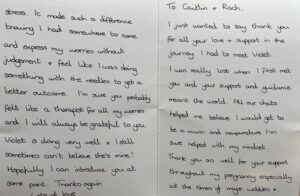 To Caitlin + Rach.
I just wanted to say thank you
for all your love + support in the
journey I had to meet Violet.
I was really lost when I first met
you and your support and guidance
meant the world. All our chats
helped me believe I would get to
be a mum and acupuncture I'm
sure helped with my mindset.
Thank you as well for your support
throughout my pregnancy especially
at the times of major wobbles +
stress. It made such a difference
knowing I had somewhere to come
and express my worries without
judgement + feel like I was doing
something with the needles to get a
better outcome. I'm sure you probably
felt like a therapist for all my worries
and I will always be grateful to you
Violet is doing very well + I still
sometimes can't believe she's mine!
Hopefully I can introduce you at
some point. Thanks again
Lots of love